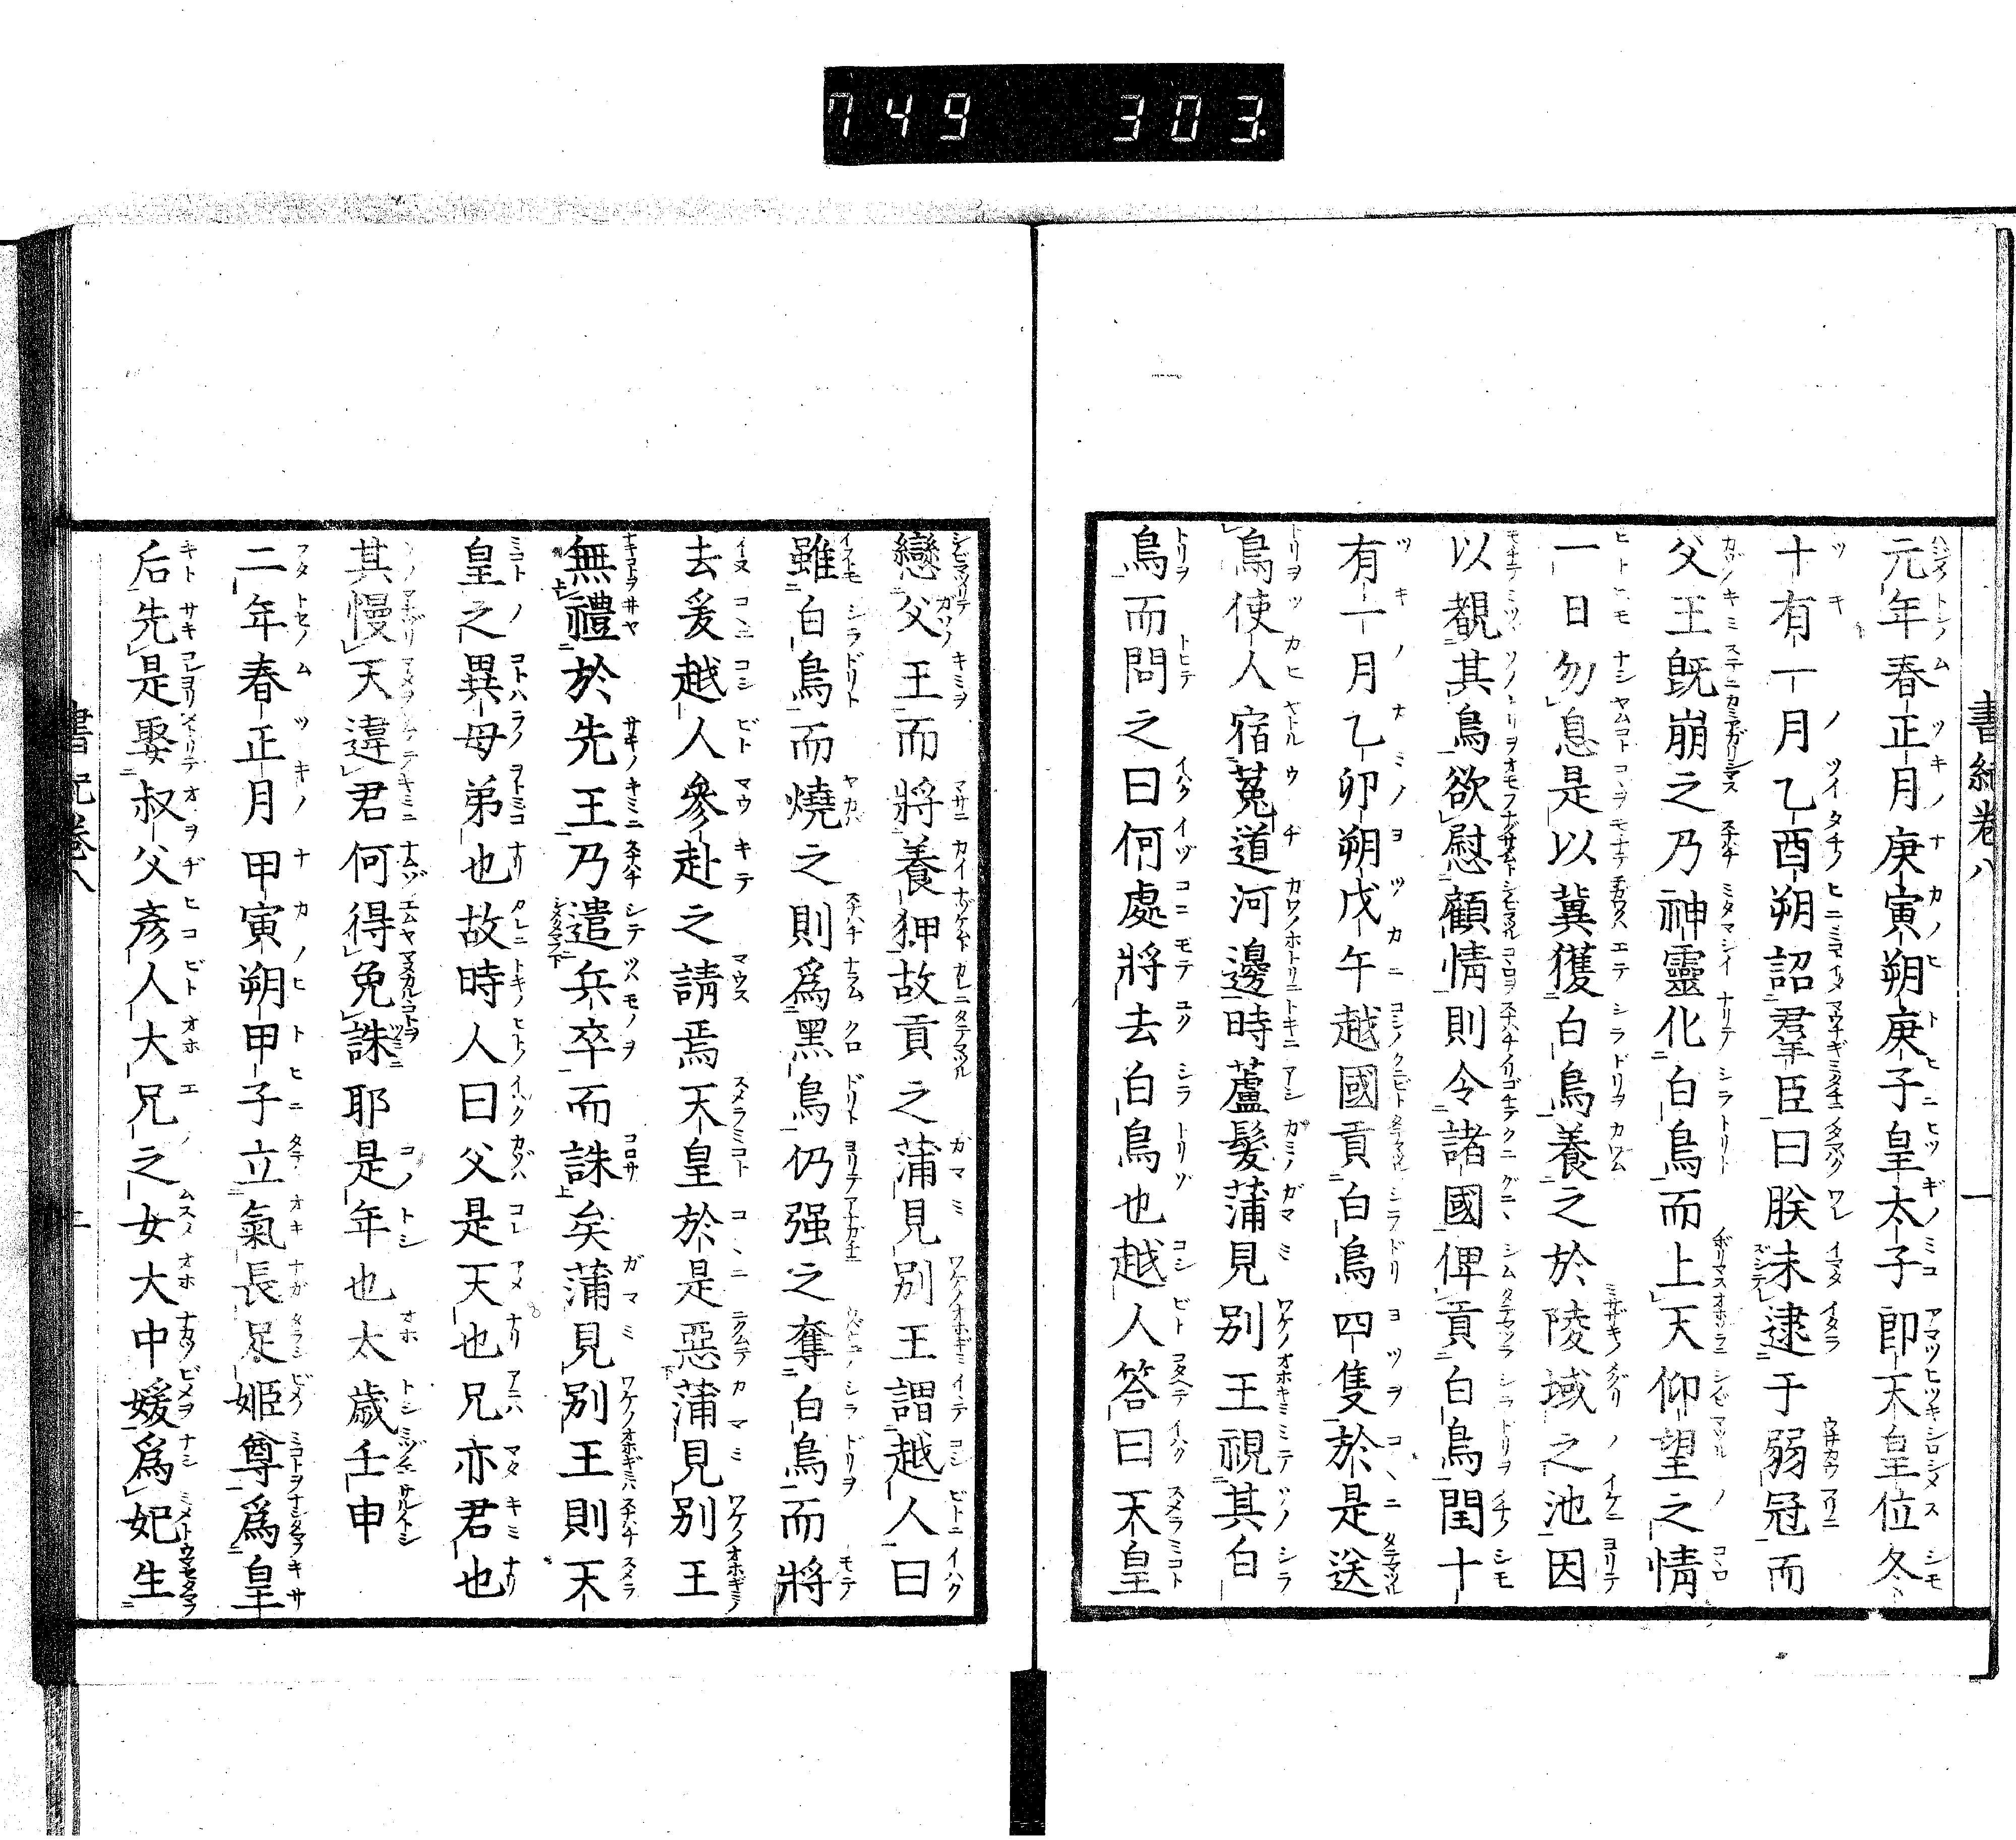 749 303.
書紀卷八 一
元年春正月庚寅朔庚子皇太子即天皇位冬
十有一月乙酉朔詔羣臣曰朕未逮于弱冠而
父王既崩之乃神靈化白鳥而上天仰望之情
一日勿息是以冀獲白鳥養之於陵域之池因
以覩其鳥欲慰顧情則令諸國俾貢白鳥閏十
有一月乙卯朔戊午越國貢白鳥四隻於是送
鳥使人宿菟道河邊時蘆髮蒲見別王視其白
鳥而問之曰何處將去白鳥也越人答曰天皇
戀父王而將養狎故貢之蒲見別王謂越人曰
雖白鳥而燒之則爲黑鳥仍强之奪白鳥而將
去爰越人參赴之請焉天皇於是惡蒲見別王
無禮於先王乃遣兵卒而誅矣蒲見別王則天
皇之異母弟也故時人曰父是天也兄亦君也
其慢天違君何得免誅耶是年也太歲壬申
二年春正月甲寅朔甲子立氣長足姬尊爲皇
后先是娶叔父彥人大兄之女大中媛爲妃生
書紀卷八 二